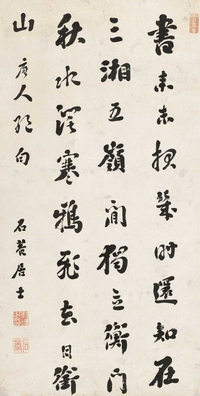 書来未報幾時還知在
三湘五嶺間獨立衡門
秋水闊寒鴉飛去日銜
山 唐人絕句
石菴居士